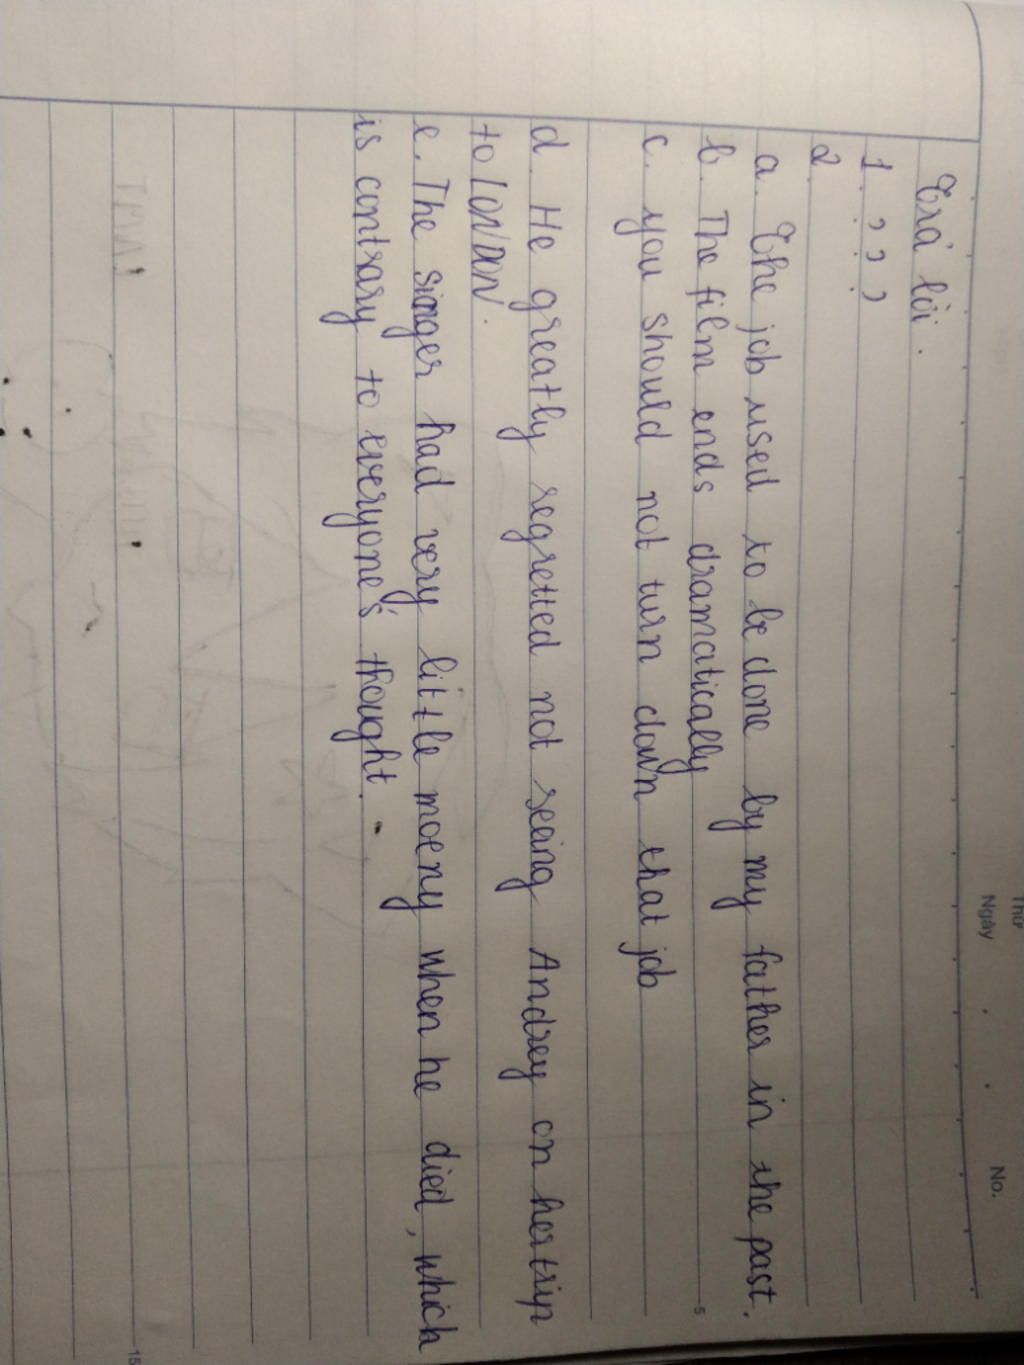 Thứ
Ngày
No.
Trả lời.
1. ? ? ?
2.
a. The job used to be done by my father in the past.
b. The film ends dramatically
c. you should not turn down that job
d. He greatly regretted not seeing Andrey on her trip
to LONDON.
e. The singer had very little moeny when he died, which
is contrary to everyone's thought.
5
15